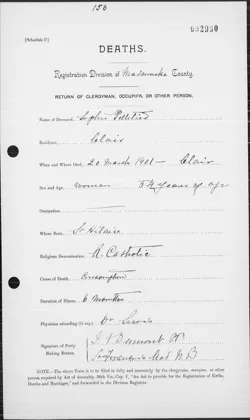 156
[Schedule C]
992990
DEATHS.
Registration Division of Madawaska County.
RETURN OF CLERGYMAN, OCCUPIER, OR OTHER PERSON.
Name of Deceased, Pelletier
Residence, Clair
When and Where Died, 20 March 1901 - Clair
Sex and Age, woman 54 years of age
Occupation,
Where Born, St Hilaire
Religious Denomination, R. Catholic
Cause of Death, Consumption
Duration of Illness, 6 months
Physician attending (if any)
Signature of Party
Making Return,
St François Mad N B
The above Form is to be filled in fully and accurately by the clergyman, occupier, or other
person required by Act of Assembly, 50th Vic, Cap. V, "An Act to provide for the Registration of Births,
Deaths and Marriages," and forwarded to the Division Registrar.